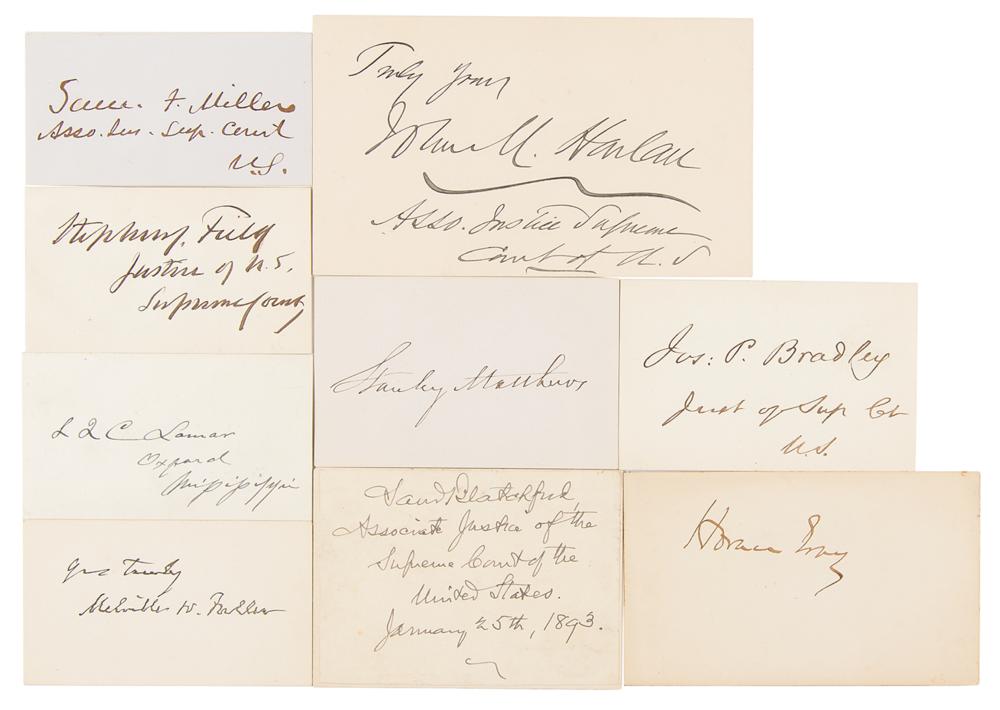 Sam. F. Miller
Asso. Jus. Sup. Court
U.S.
Truly yours
John M. Harlan
Asso. Justice Supreme
Court of U. S
Stephen J. Field
Justice of U. S.
Supreme Court
Stanley Matthews
Jos: P. Bradley
Just of Sup Ct
U.S.
L Q C Lamar
Oxford
Mississippi
Yrs truly
Melville W. Fuller
Saml Blatchford,
Associate Justice of the
Supreme Court of the
United States.
January 25th, 1893.
Horace Gray